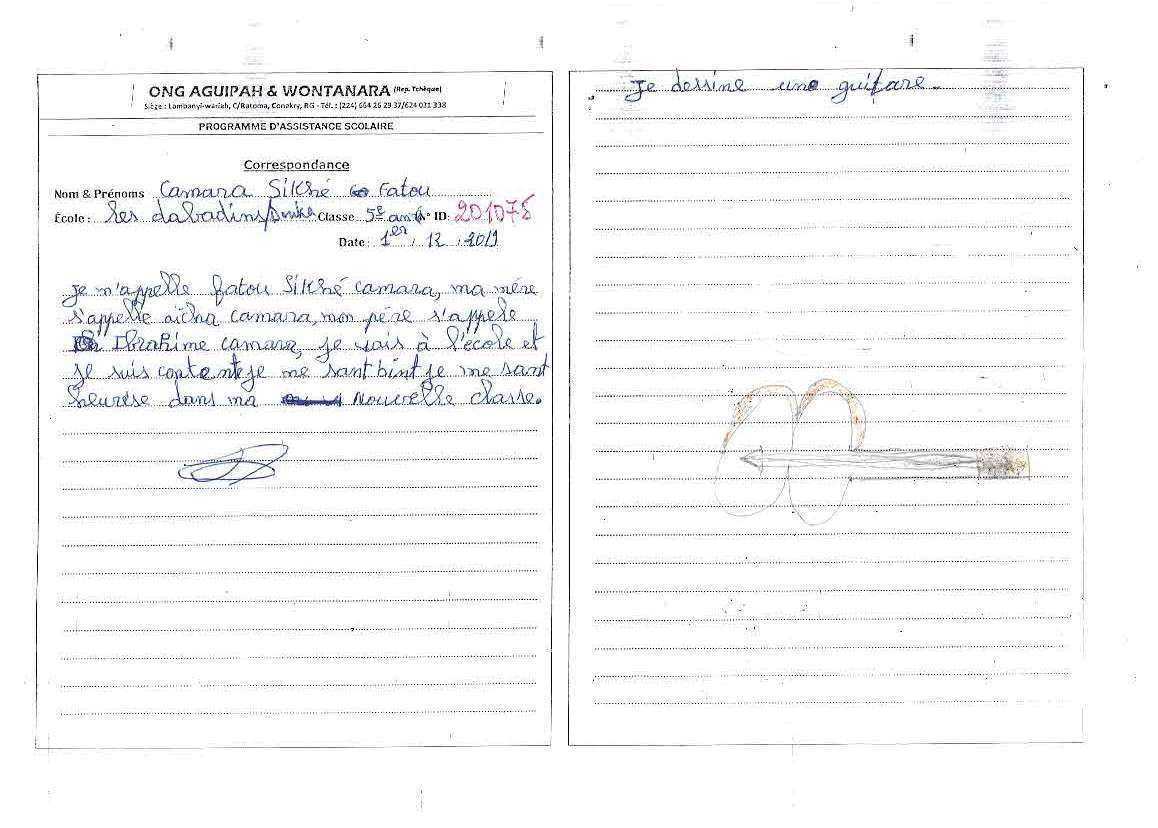 ONG AGUIPAH & WONTANARA (Rep. Tchèque)
Siège : Lambanyi-warièh, C/Ratoma, Conakry, RG - Tél. : (224) 664 26 29 37/624 031 338
PROGRAMME D'ASSISTANCE SCOLAIRE
Correspondance
Nom & Prénoms Camara Sikhé Fatou
École : Les dabadins/ Classe 5e année N° ID: 201078
Date : 1er / 12 / 2019
Je m'appelle fatou Sikhé camara, ma mère
s'appelle aïcha camara, mon père s'appele
Ibrahime camara, je vais à l'école et
je suis contente je me sant bint je me sant
heurese dans ma nouvelle classe.
Je dessine une guitare.